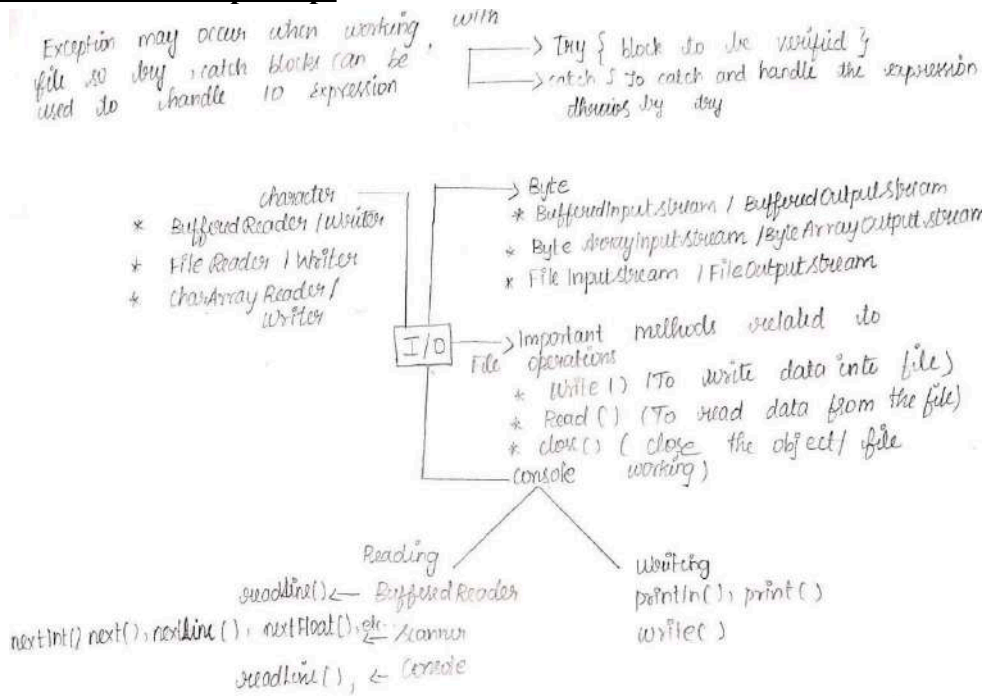 Exception may occur when working with
file so try, catch blocks can be
used to handle IO expression
→ Try { block to be verified }
→ catch { To catch and handle the expression
throws by try
character
* BufferedReader / Writer
* File Reader / Writer
* CharArray Reader /
Writer
→ Byte
* BufferedInputstream / BufferedOutputstream
* Byte ArrayInputstream / ByteArrayOutputstream
* File Inputstream / FileOutputstream
I/O
→ Important methods related to
File operations
* Write() (To write data into file)
* Read () (To read data from the file)
* close() ( close the object/ file
working)
console
Reading
readline() ← BufferedReader
nextInt() next(), nextline(), nextFloat(), etc ← Scanner
readline(), ← Console
Writing
println(), print()
write()